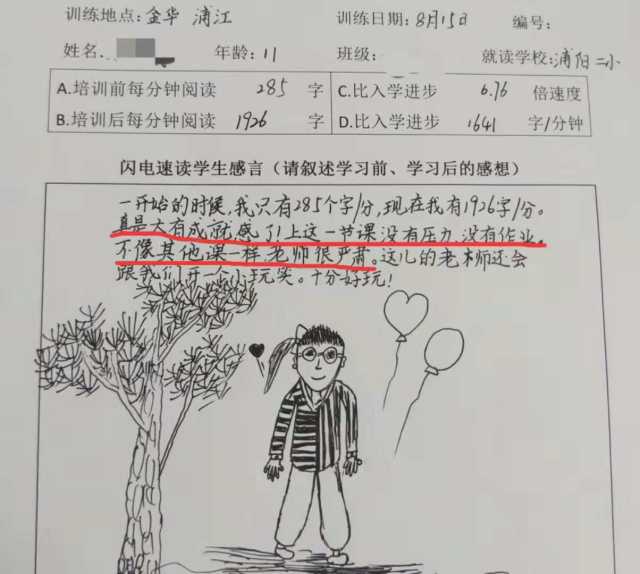 训练地点:金华 浦江 训练日期:8月15日 编号:
姓名. 年龄:11 班级: 就读学校:浦阳二小
A.培训前每分钟阅读 285 字 C.比入学进步 6.76 倍速度
B.培训后每分钟阅读 1926 字 D.比入学进步 1641 字/分钟
闪电速读学生感言（请叙述学习前、学习后的感想）
一开始的时候,我只有285个字/分,现在我有1926字/分。
真是大有成就感了!上这一节课没有压力,没有作业。
不像其他课一样,老师很严肃。这儿的老师还会
跟我们开一个小玩笑。十分好玩!